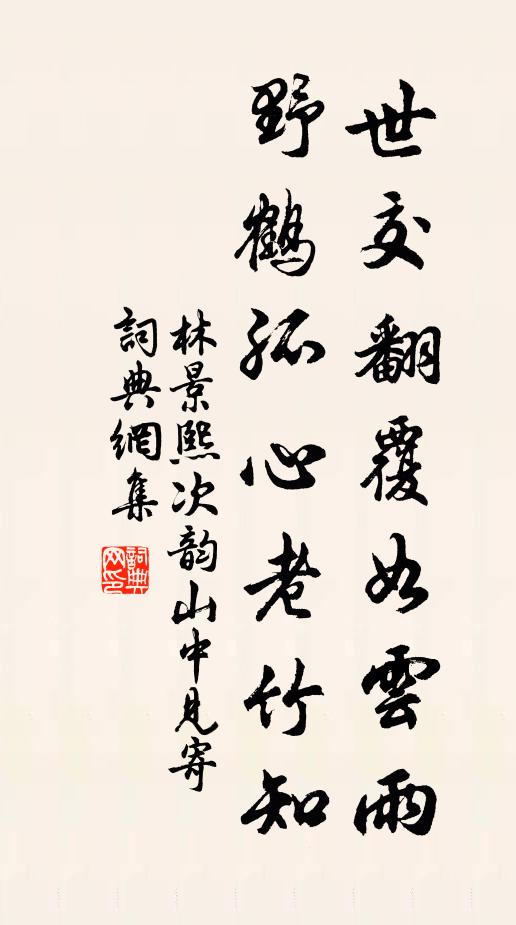 世交翻覆如雲雨
野鶴孤心老竹知
林景熙次韵山中見寄
詞典網集
詞典網印